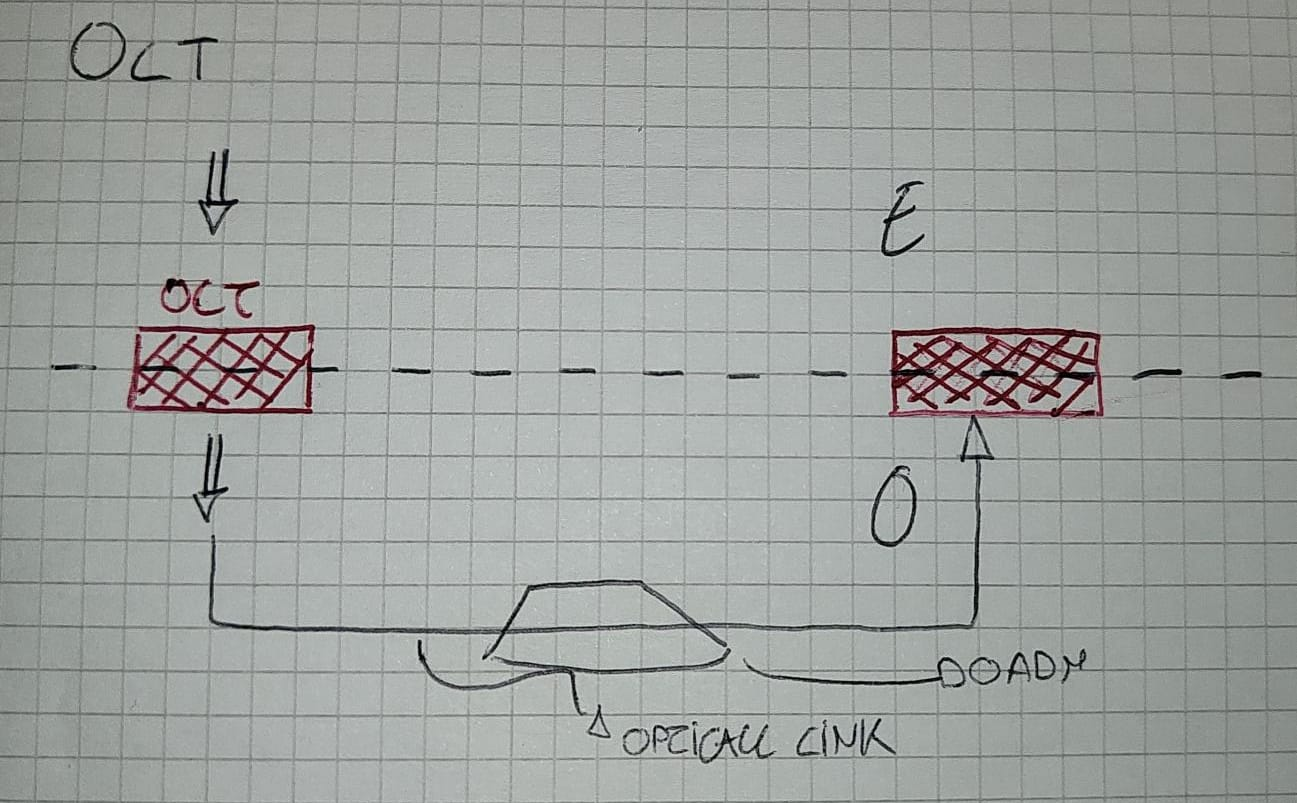 OCT
E
OCT
O
DOADM
OPTICALL LINK